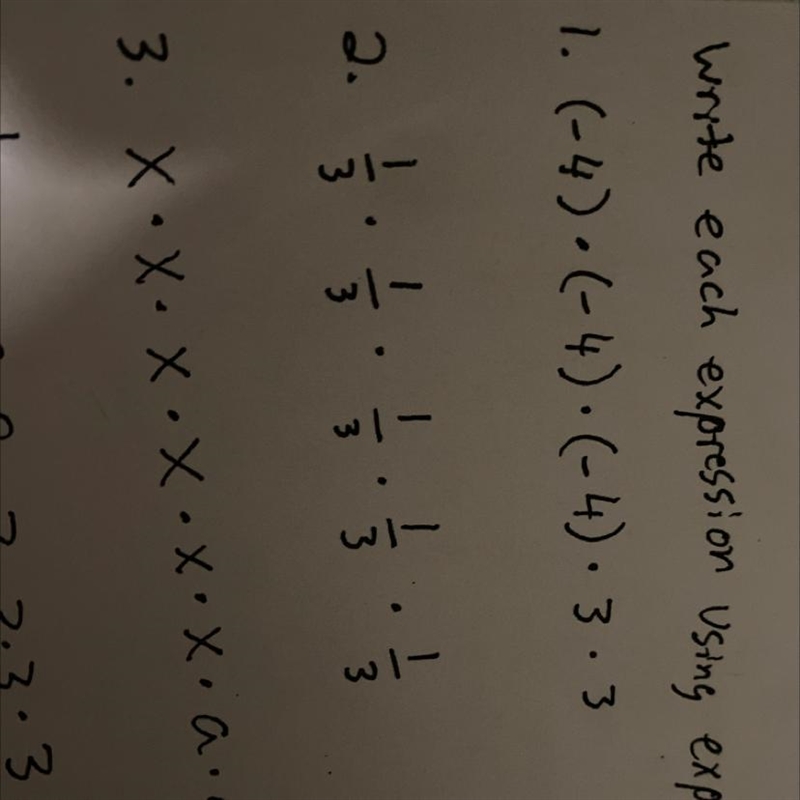 Write each expression using exp
1. (-4)·(-4)·(-4)·3·3
2. 1/3 · 1/3 · 1/3 · 1/3 · 1/3
3. x·x·x·x·x·x·a·
2·3·3